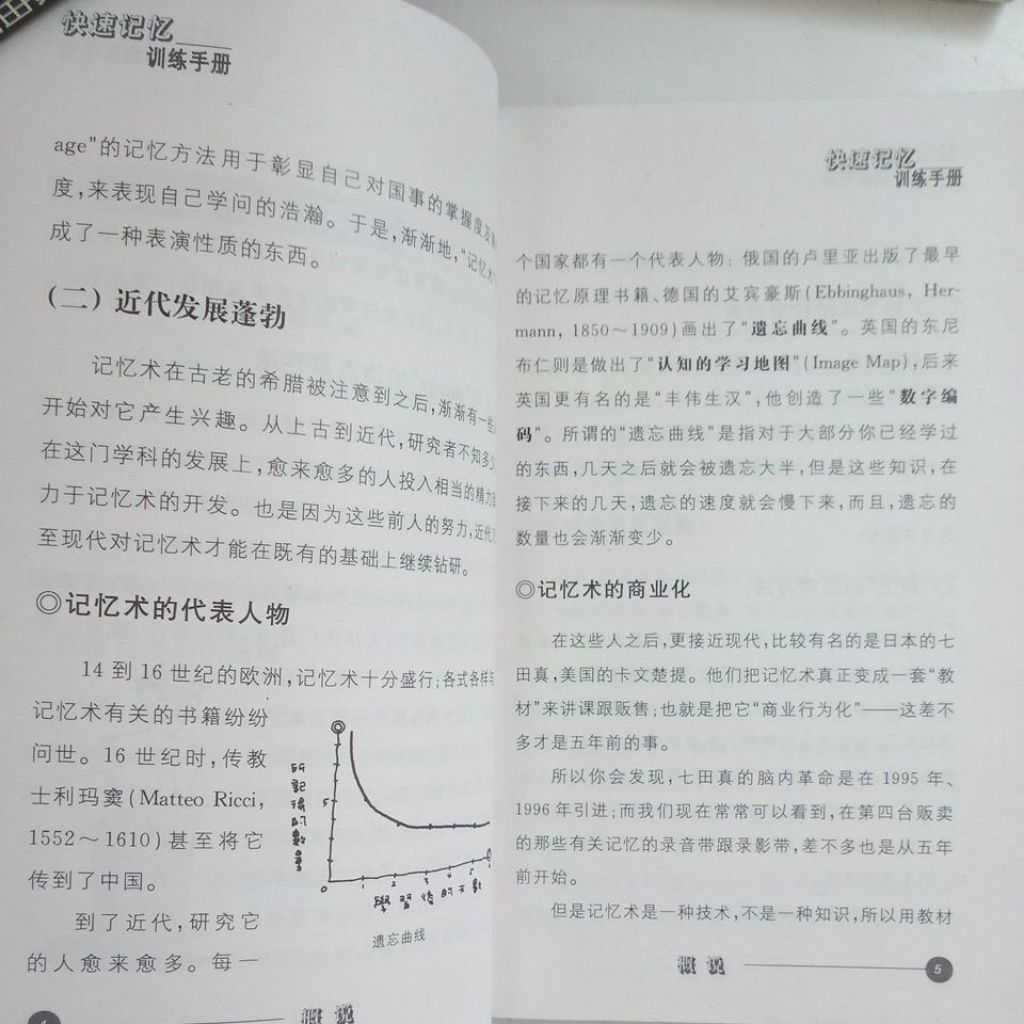 快速记忆
训练手册
age"的记忆方法用于彰显自己对国事的掌握度及
度,来表现自己学问的浩瀚。于是,渐渐地,"记忆术"
成了一种表演性质的东西。
(二) 近代发展蓬勃
记忆术在古老的希腊被注意到之后,渐渐有一些
开始对它产生兴趣。从上古到近代,研究者不知多少
在这门学科的发展上,愈来愈多的人投入相当的精力
力于记忆术的开发。也是因为这些前人的努力,近代
至现代对记忆术才能在既有的基础上继续钻研。
◎记忆术的代表人物
14 到 16 世纪的欧洲,记忆术十分盛行;各式各样与
记忆术有关的书籍纷纷
问世。16 世纪时,传教
士利玛窦(Matteo Ricci,
1552～1610)甚至将它
传到了中国。
到了近代,研究它
的人愈来愈多。每一
所記得的數量
5
0 1 2 3 4 5 6
學習後的天數
遗忘曲线
概说
快速记忆
训练手册
个国家都有一个代表人物:俄国的卢里亚出版了最早
的记忆原理书籍、德国的艾宾豪斯(Ebbinghaus, Her-
mann, 1850～1909)画出了"遗忘曲线"。英国的东尼
布仁则是做出了"认知的学习地图"(Image Map),后来
英国更有名的是"丰伟生汉",他创造了一些"数字编
码"。所谓的"遗忘曲线"是指对于大部分你已经学过
的东西,几天之后就会被遗忘大半,但是这些知识,在
接下来的几天,遗忘的速度就会慢下来,而且,遗忘的
数量也会渐渐变少。
◎记忆术的商业化
在这些人之后,更接近现代,比较有名的是日本的七
田真,美国的卡文楚提。他们把记忆术真正变成一套"教
材"来讲课跟贩售;也就是把它"商业行为化"——这差不
多才是五年前的事。
所以你会发现,七田真的脑内革命是在 1995 年、
1996 年引进;而我们现在常常可以看到,在第四台贩卖
的那些有关记忆的录音带跟录影带,差不多也是从五年
前开始。
但是记忆术是一种技术,不是一种知识,所以用教材
概说
5